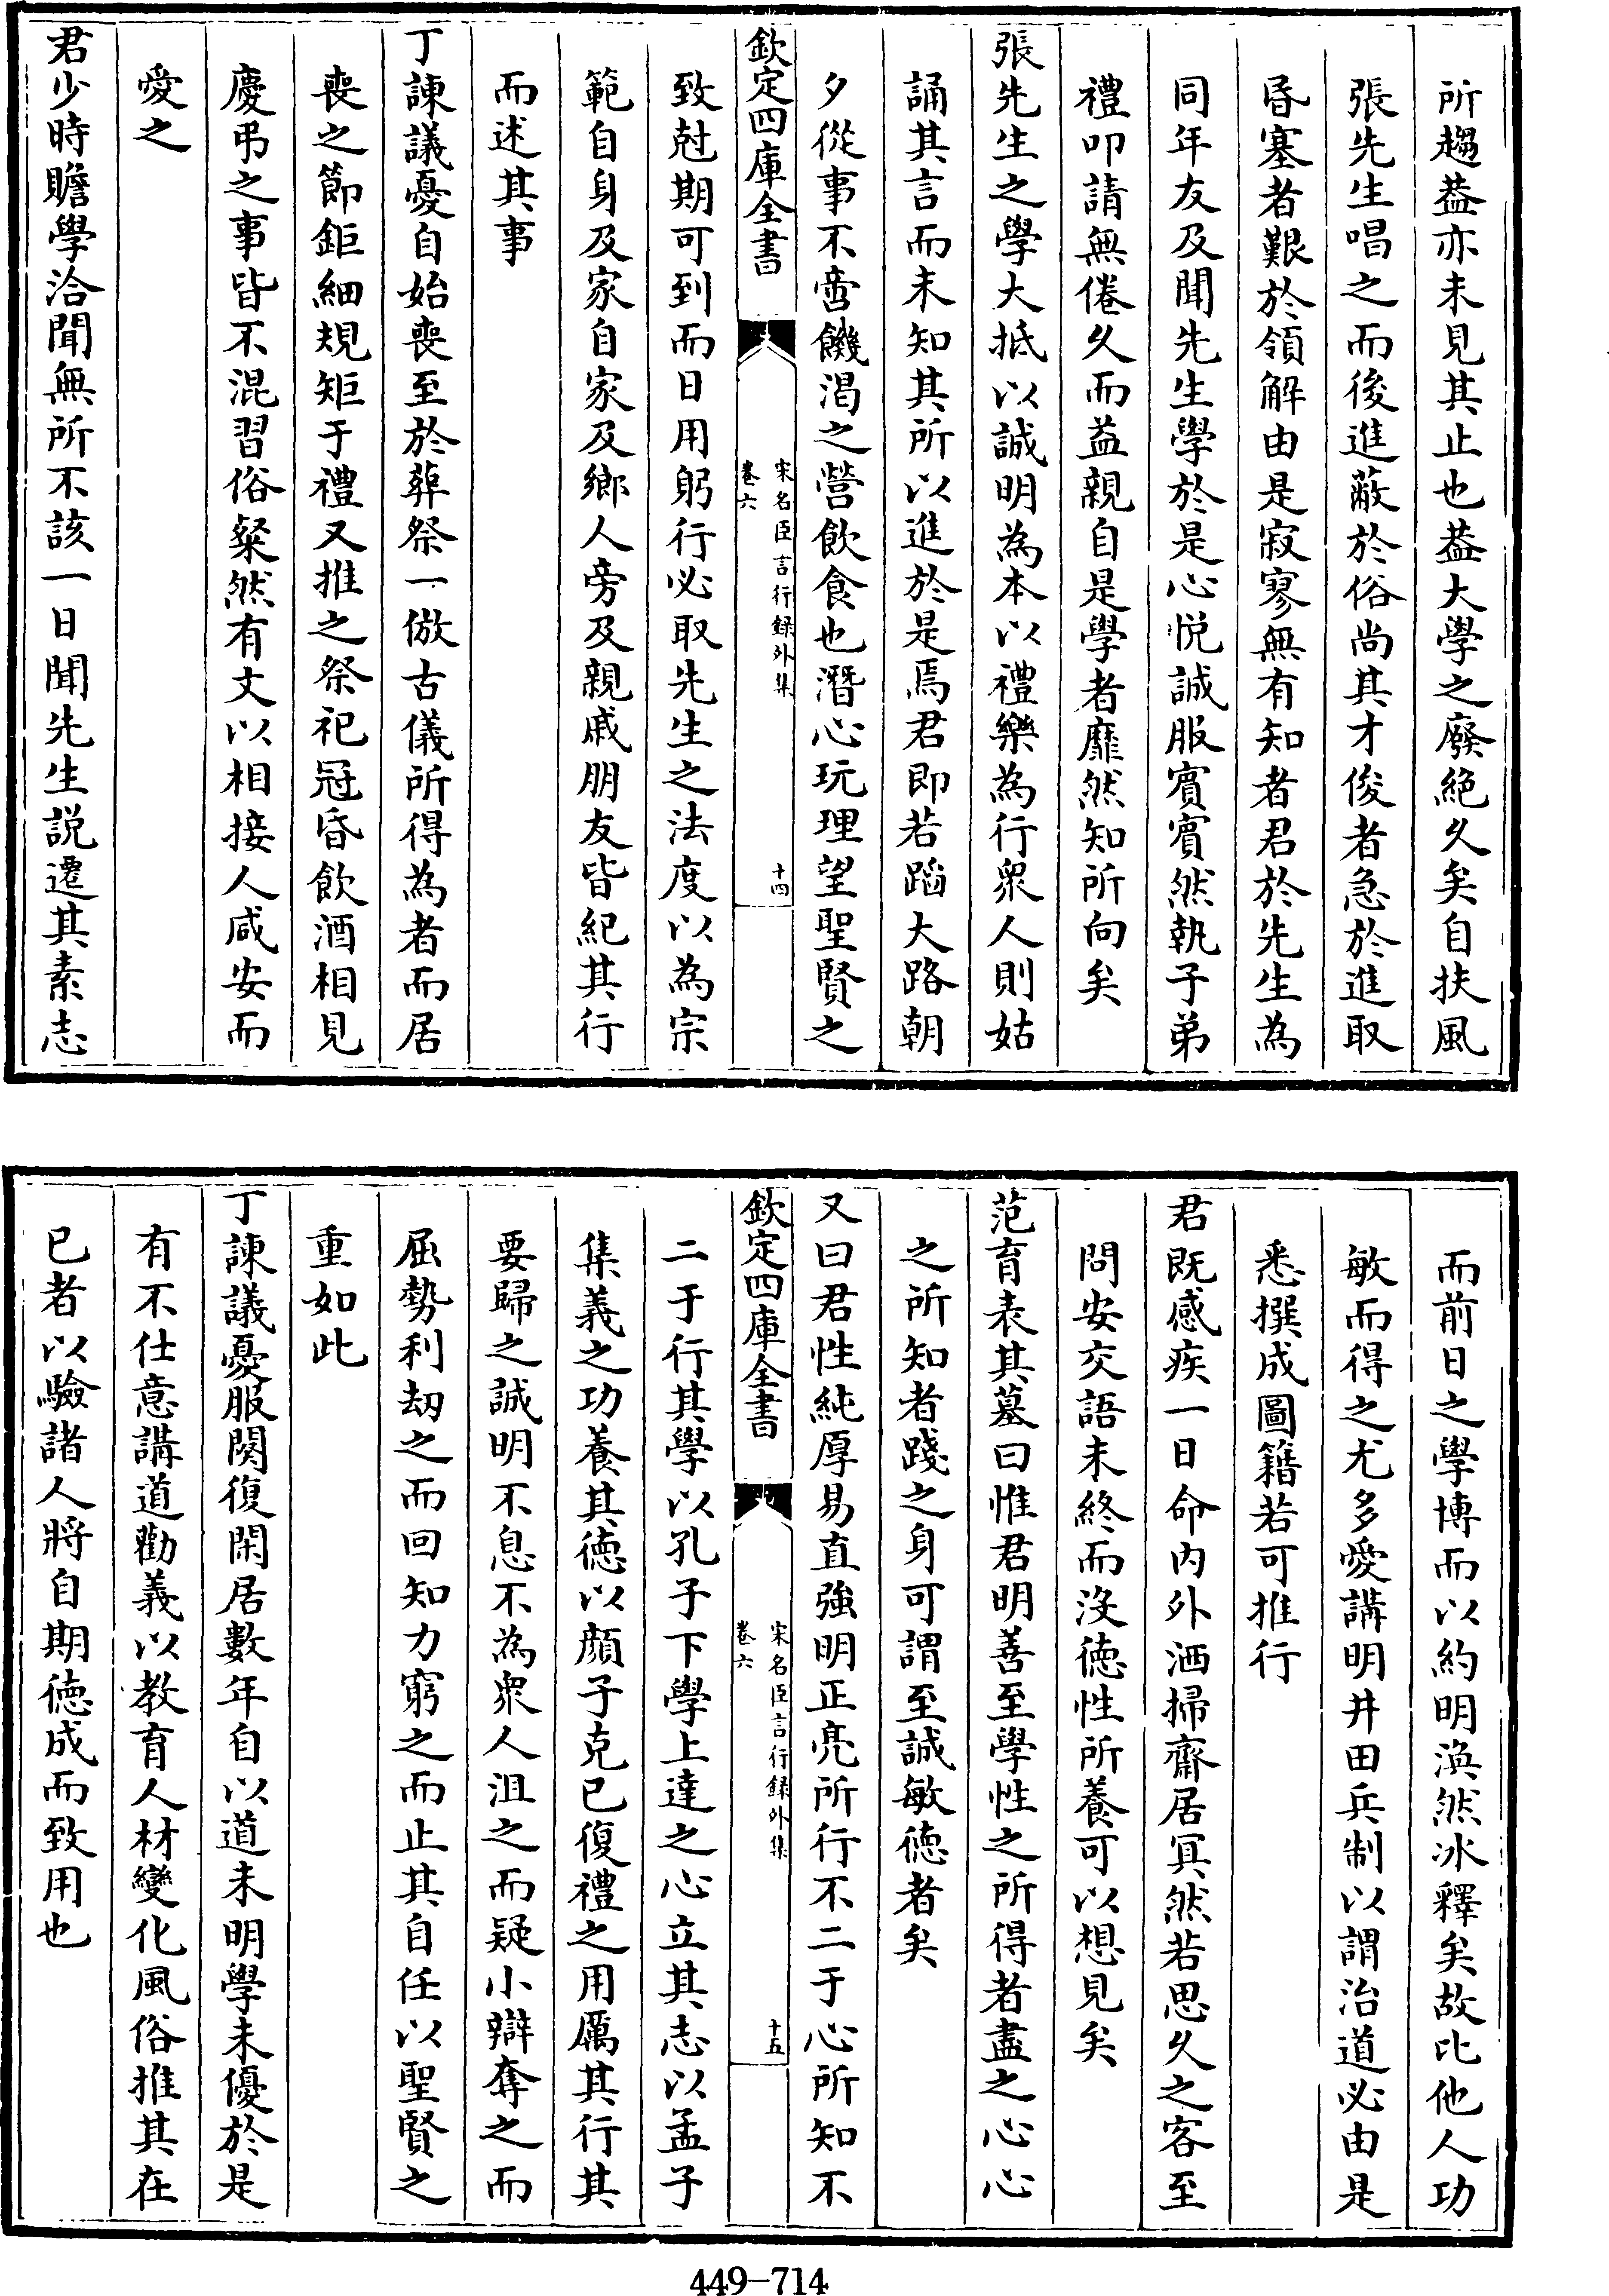 所趨葢亦未見其止也葢大學之廢絶久矣自扶風
張先生唱之而後進蔽於俗尚其才俊者急於進取
昏塞者艱於領解由是寂寥無有知者君於先生為
同年友及聞先生學於是心悦誠服賔賔然執子弟
禮叩請無倦久而益親自是學者靡然知所向矣
張先生之學大抵以誠明為本以禮樂為行衆人則姑
誦其言而未知其所以進於是焉君即若蹈大路朝
夕從事不啻饑渇之營飲食也潛心玩理望聖賢之
欽定四庫全書
宋名臣言行録外集
卷六
十四
致尅期可到而日用躬行必取先生之法度以為宗
範自身及家自家及鄉人旁及親戚朋友皆紀其行
而述其事
丁諫議憂自始喪至於葬祭一倣古儀所得為者而居
喪之節鉅細規矩于禮又推之祭祀冠昏飲酒相見
慶弔之事皆不混習俗粲然有文以相接人咸安而
愛之
君少時贍學洽聞無所不該一日聞先生說遷其素志
而前日之學博而以約明渙然冰釋矣故比他人功
敏而得之尤多愛講明井田兵制以謂治道必由是
悉撰成圖籍若可推行
君既感疾一日命内外洒掃齋居冥然若思久之客至
問安交語未終而沒徳性所養可以想見矣
范育表其墓曰惟君明善至學性之所得者盡之心心
之所知者踐之身可謂至誠敏徳者矣
又曰君性純厚易直強明正亮所行不二于心所知不
欽定四庫全書
宋名臣言行録外集
卷六
十五
二于行其學以孔子下學上達之心立其志以孟子
集義之功養其徳以顔子克已復禮之用厲其行其
要歸之誠明不息不為衆人沮之而疑小辯奪之而
屈勢利刼之而回知力窮之而止其自任以聖賢之
重如此
丁諫議憂服闋復閑居數年自以道未明學未優於是
有不仕意講道勸義以教育人材變化風俗推其在
已者以驗諸人將自期徳成而致用也
449-714